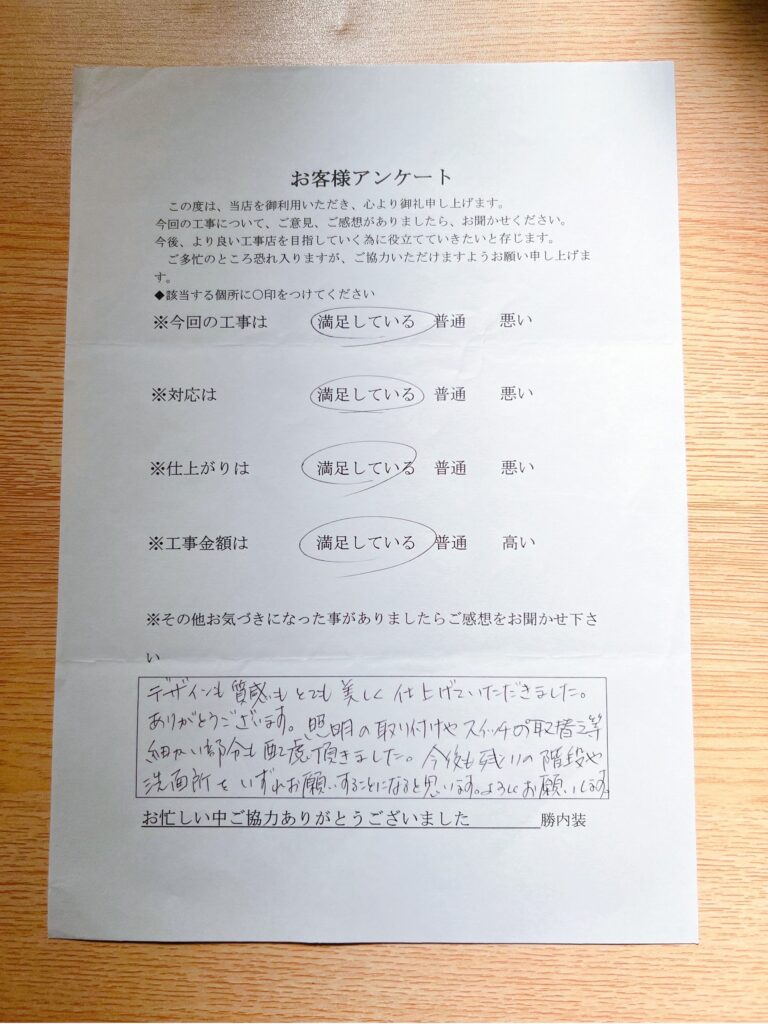 お客様アンケート
この度は、当店を御利用いただき、心より御礼申し上げます。
今回の工事について、ご意見、ご感想がありましたら、お聞かせください。
今後、より良い工事店を目指していく為に役立てていきたいと存じます。
ご多忙のところ恐れ入りますが、ご協力いただけますようお願い申し上げま
す。
◆該当する個所に〇印をつけてください
※今回の工事は 満足している 普通 悪い
※対応は 満足している 普通 悪い
※仕上がりは 満足している 普通 悪い
※工事金額は 満足している 普通 高い
※その他お気づきになった事がありましたらご感想をお聞かせ下さ
い
デザインも質感もとても美しく仕上げていただきました。
ありがとうございます。照明の取り付けやスイッチの取替え等
細かい部分も配慮頂きました。今後も残りの階段や
洗面所をいずれお願いすることになると思います。よろしくお願いします。
お忙しい中ご協力ありがとうございました 勝内装